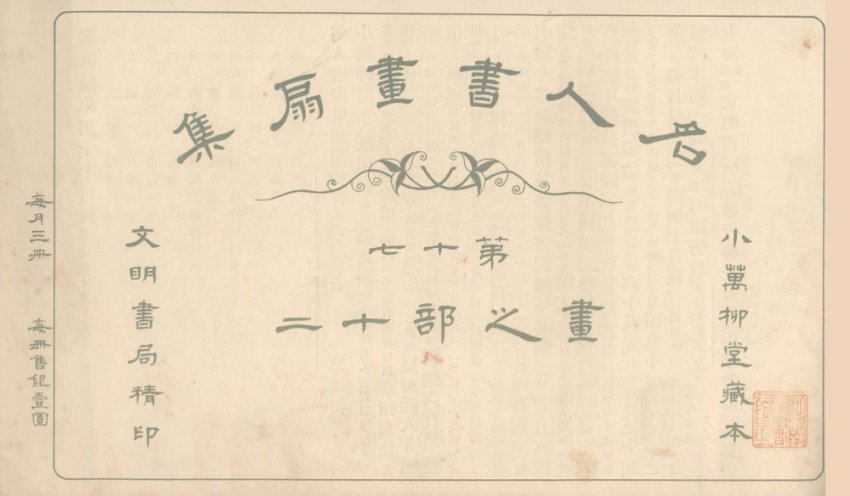 名人書畫扇集
第十七
畫之部十二
小萬柳堂藏本
文明書局精印
每月三冊
每冊售銀壹圓